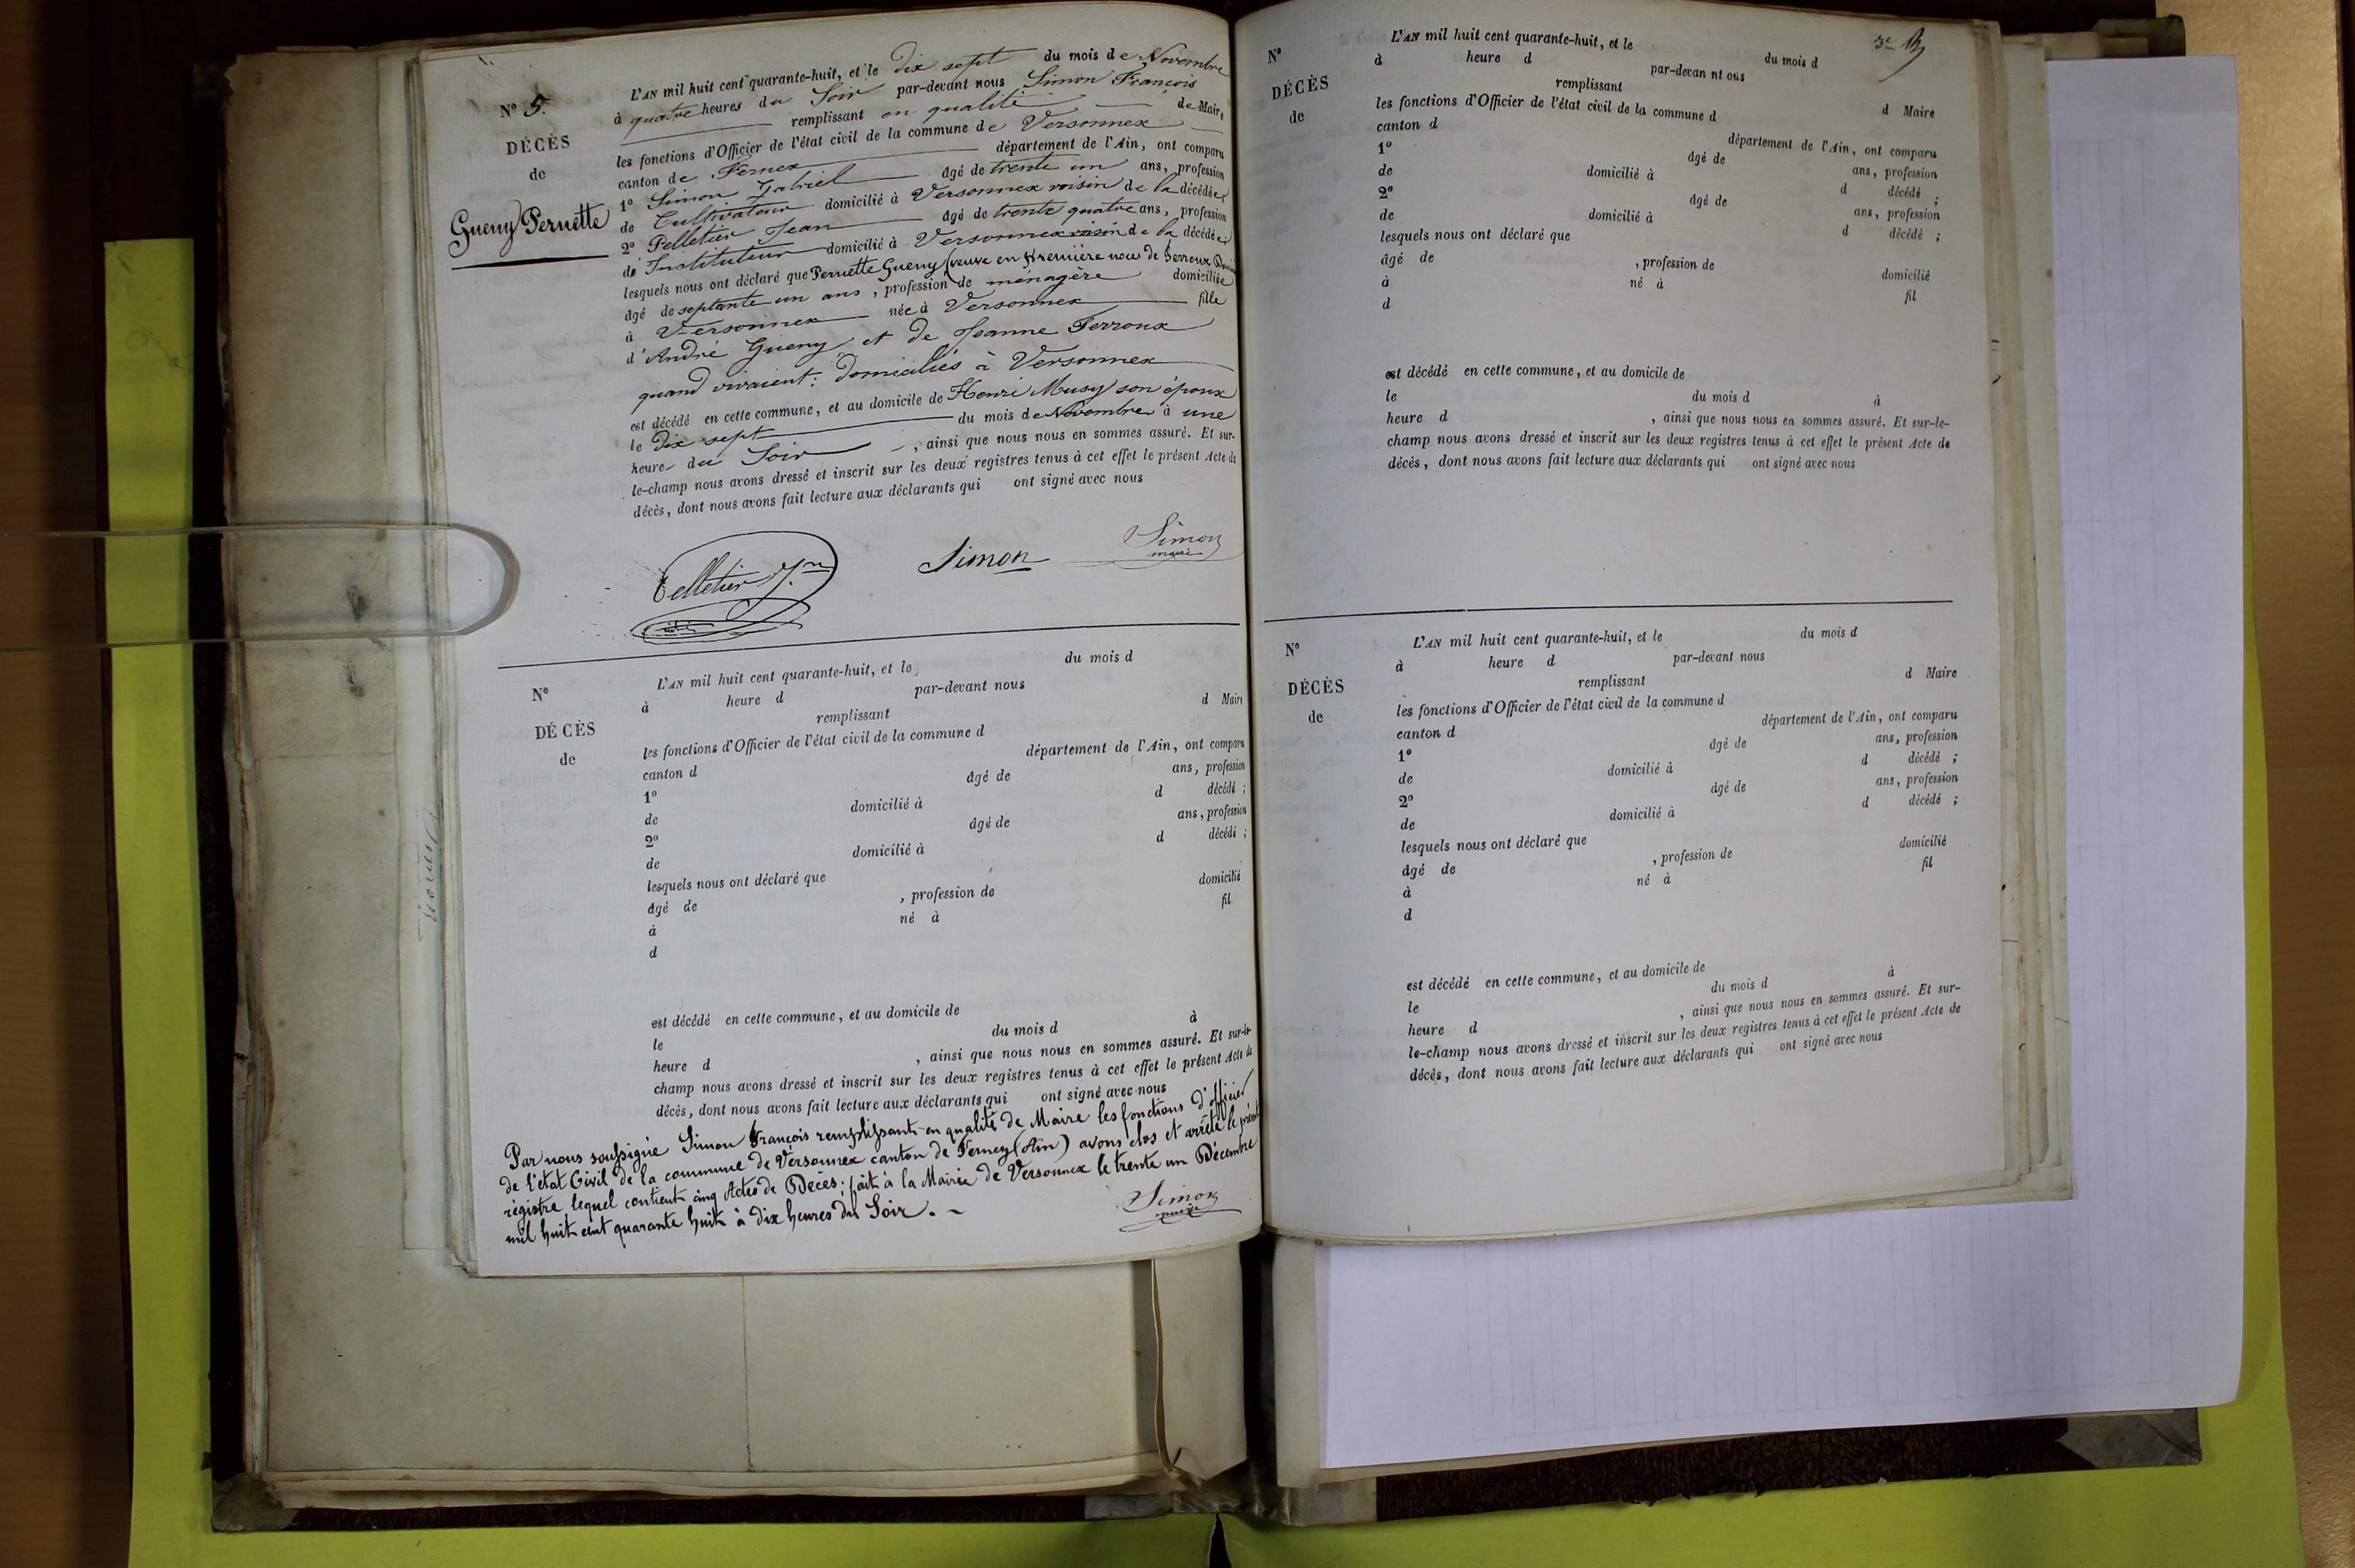 N° 5.
DÉCÈS
de
Gueny Pernette
L'AN mil huit cent quarante-huit, et le dix sept du mois de Novembre
à quatre heures du Soir par-devant nous Simon François
remplissant en qualité de Maire
les fonctions d'Officier de l'état civil de la commune de Versonnex
canton de Fernex département de l'Ain, ont comparu
1° Simon Gabriel âgé de trente un ans, profession
de Cultivateur domicilié à Versonnex voisin de la décédée,
2° Pelletier Jean âgé de trente quatre ans, profession
de Instituteur domicilié à Versonnex voisin de la décédée,
lesquels nous ont déclaré que Pernette Gueny (veuve en première noces de Perroux
âgé de septante un ans, profession de ménagère domiciliée
à Versonnex née à Versonnex fille
d'André Gueny et de Jeanne Perroux
quand vivaient: domiciliés à Versonnex
est décédé en cette commune, et au domicile de Henri Musy son époux
le dix sept du mois de Novembre à une
heure du Soir, ainsi que nous nous en sommes assuré. Et sur-
le-champ nous avons dressé et inscrit sur les deux registres tenus à cet effet le présent Acte de
décès, dont nous avons fait lecture aux déclarants qui ont signé avec nous
Pelletier Jn Simon Simon
maire
N°
DÉCÈS
de
L'AN mil huit cent quarante-huit, et le du mois d
à heure d par-devant nous
remplissant d Maire
les fonctions d'Officier de l'état civil de la commune d
canton d département de l'Ain, ont comparu
1° âgé de ans, profession
de domicilié à d décédé ;
2° âgé de ans, profession
de domicilié à d décédé ;
lesquels nous ont déclaré que
âgé de , profession de domicilié
à né à fil
d
est décédé en cette commune, et au domicile de
le du mois d à
heure d , ainsi que nous nous en sommes assuré. Et sur-le-
champ nous avons dressé et inscrit sur les deux registres tenus à cet effet le présent Acte de
décès, dont nous avons fait lecture aux déclarants qui ont signé avec nous
Par nous soussigné Simon François remplissant en qualité de Maire les fonctions d'officier
de l'état Civil de la commune de Versonnex canton de Ferney (Ain) avons clos et arrêté le présent
régistre lequel contient cinq Actes de Décès; fait à la Mairie de Versonnex le trente un Décembre
mil huit cent quarante huit à dix heures du Soir.
Simon
maire
3e
N°
DÉCÈS
de
L'AN mil huit cent quarante-huit, et le du mois d
à heure d par-devan nt ous
remplissant d Maire
les fonctions d'Officier de l'état civil de la commune d
canton d département de l'Ain, ont comparu
1° âgé de ans, profession
de domicilié à d décédé ;
2° âgé de ans, profession
de domicilié à d décédé ;
lesquels nous ont déclaré que
âgé de , profession de domicilié
à né à fil
d
est décédé en cette commune, et au domicile de
le du mois d à
heure d , ainsi que nous nous en sommes assuré. Et sur-le-
champ nous avons dressé et inscrit sur les deux registres tenus à cet effet le présent Acte de
décès, dont nous avons fait lecture aux déclarants qui ont signé avec nous
N°
DÉCÈS
de
L'AN mil huit cent quarante-huit, et le du mois d
à heure d par-devant nous
remplissant d Maire
les fonctions d'Officier de l'état civil de la commune d
canton d département de l'Ain, ont comparu
1° âgé de ans, profession
de domicilié à d décédé ;
2° âgé de ans, profession
de domicilié à d décédé ;
lesquels nous ont déclaré que
âgé de , profession de domicilié
à né à fil
d
est décédé en cette commune, et au domicile de
le du mois d à
heure d , ainsi que nous nous en sommes assuré. Et sur-
le-champ nous avons dressé et inscrit sur les deux registres tenus à cet effet le présent Acte de
décès, dont nous avons fait lecture aux déclarants qui ont signé avec nous